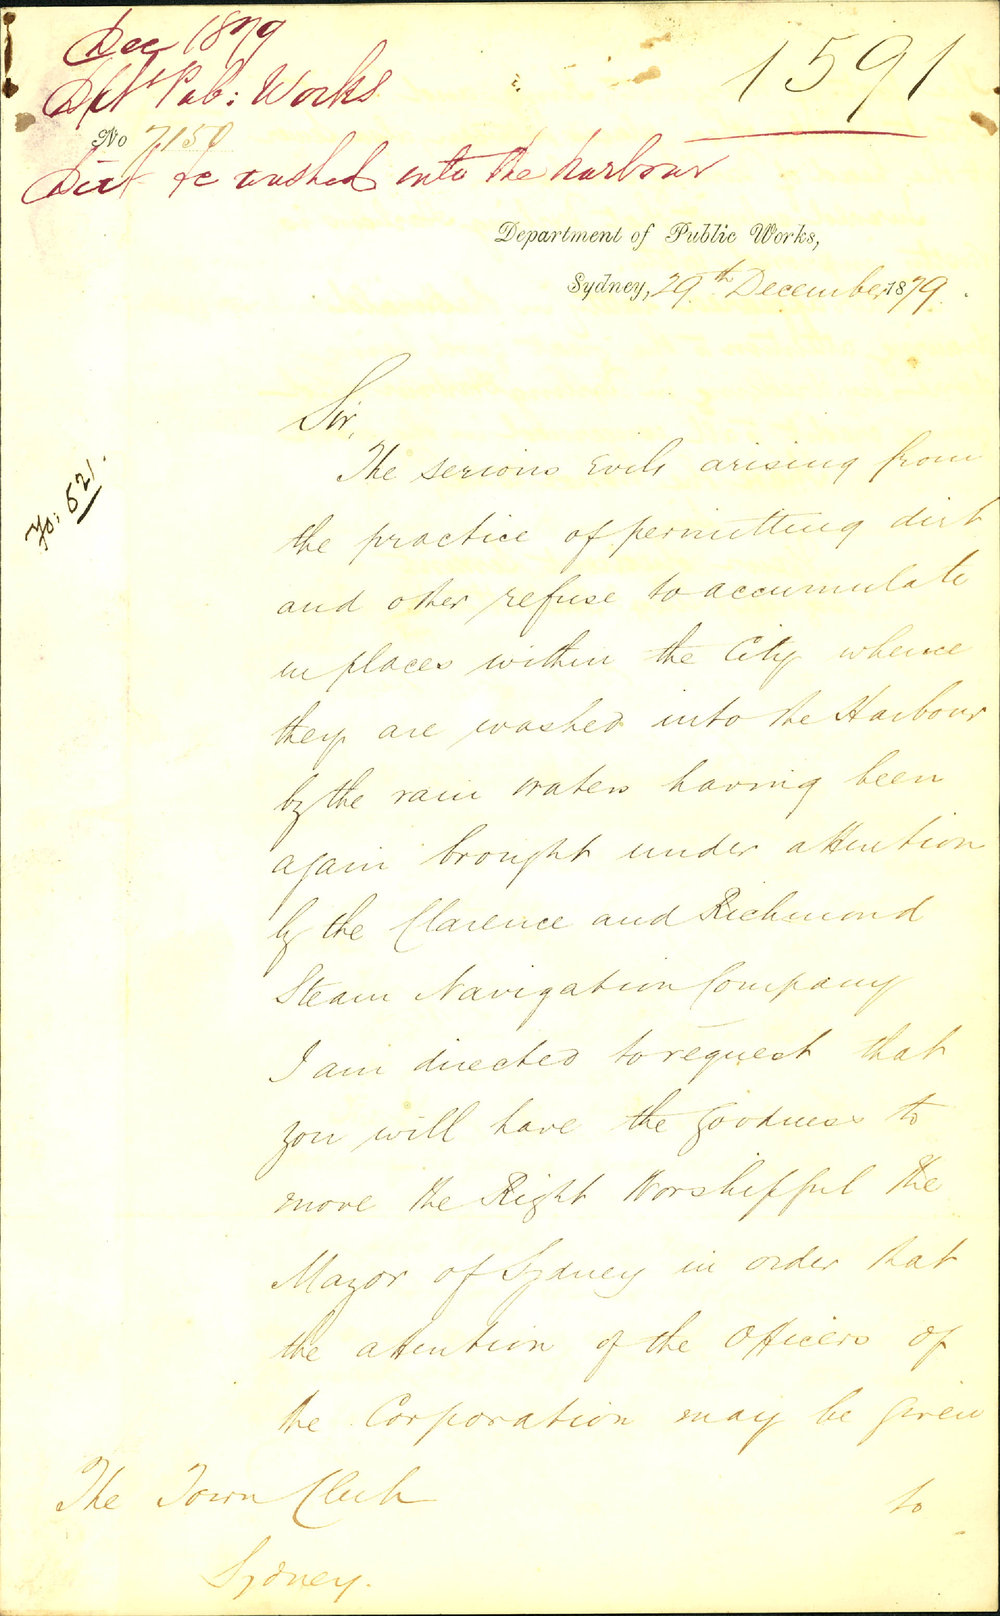 Dec 1879
1591
Dpt Pub: Works
No 7150
Dirt &c washed into the harbour
Department of Public Works,
Sydney, 29th December 1879.
Fo: 521.
Sir,
The serious Evils arising from
the practice of permitting dirt
and other refuse to accumulate
in places within the City whence
they are washed into the Harbour
by the rain waters having been
again brought under attention
by the Clarence and Richmond
Steam Navigation Company
I am directed to request that
you will have the goodness to
move the Right Worshipful the
Mayor of Sydney in order that
the attention of the Officers of
the Corporation may be given
The Town Clerk
to
Sydney.